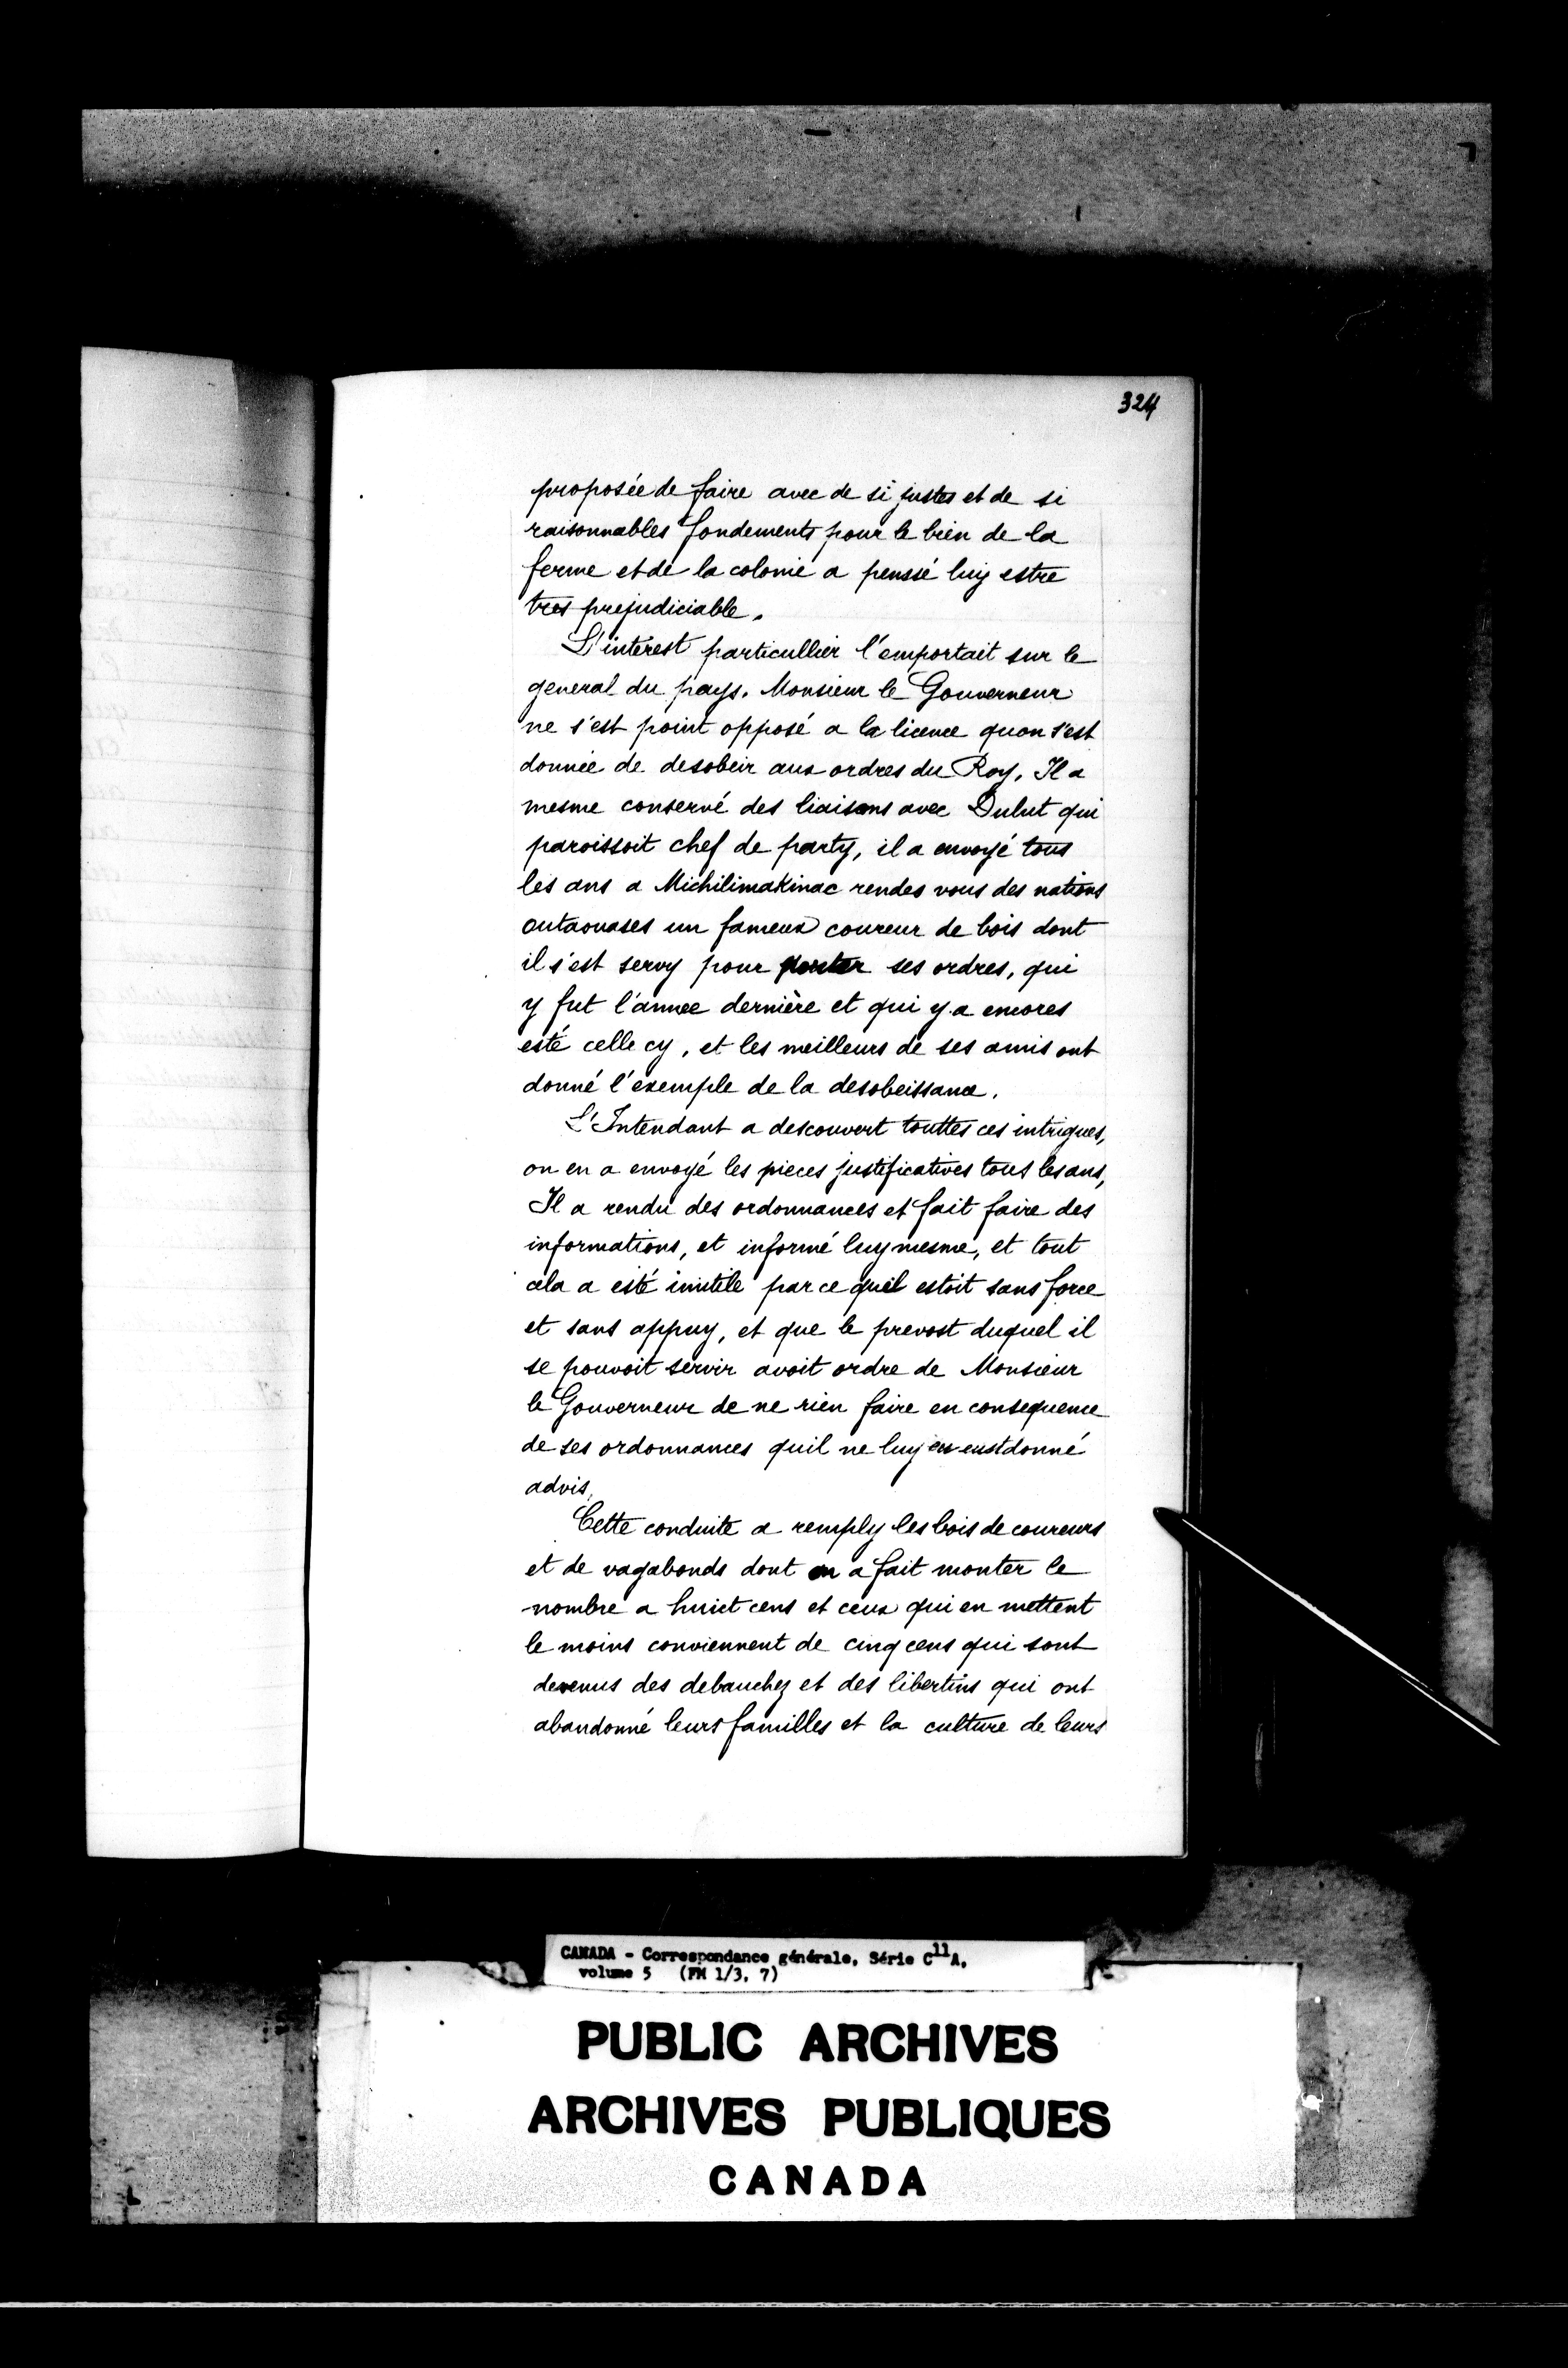 324
proposée de faire avec de si justes et de si
raisonnables fondements pour le bien de la
ferme et de la colonie a pensé luy estre
tres prejudiciable.
L'interest particullier l'emportait sur le
general du pays. Monsieur le Gouverneur
ne s'est point opposé a la licence quon s'est
donnée de desobeir aux ordres du Roy. Il a
mesme conservé des liaisons avec Dulut qui
paroissoit chef de party, il a envoyé tous
les ans a Michilimakinac rendes vous des nations
outaouases un fameux coureur de bois dont
il s'est servy pour porter ses ordres, qui
y fut l'annee dernière et qui y a encores
esté celle cy, et les meilleurs de ses amis ont
donné l'exemple de la desobeissance.
L'Intendant a descouvert touttes ces intrigues,
on en a envoyé les pieces justificatives tous les ans,
Il a rendu des ordonnances et fait faire des
informations, et informé luy mesme, et tout
cela a esté inutile par ce quil estoit sans force
et sans appuy, et que le prevost duquel il
se pouvoit servir avoit ordre de Monsieur
le Gouverneur de ne rien faire en consequence
de ses ordonnances quil ne luy en eust donné
advis.
Cette conduite a remply les bois de coureurs
et de vagabonds dont on a fait monter le
nombre a huict cens et ceux qui en mettent
le moins conviennent de cinq cens qui sont
devenus des debauchez et des libertins qui ont
abandonné leurs familles et la culture de leurs
CANADA - Correspondance générale, Série C11A,
volume 5 (FM 1/3, 7)
PUBLIC ARCHIVES
ARCHIVES PUBLIQUES
CANADA